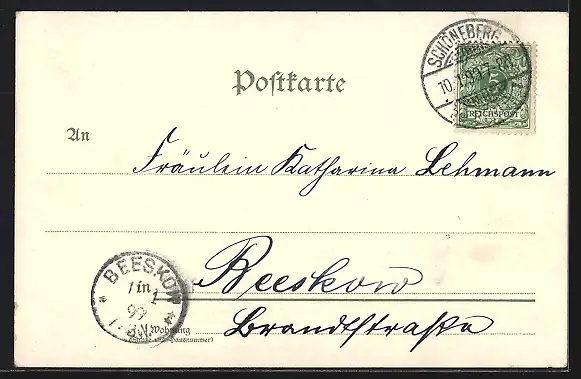 Postkarte
SCHÖNEBERG
10.1.99.7-8N.
5
REICHSPOST
An
Fräulein Katharina Lehmann
BEESKOW
in
Beeskow
1
99
Wohnung
Brandtstraße
(Straße und Hausnummer)